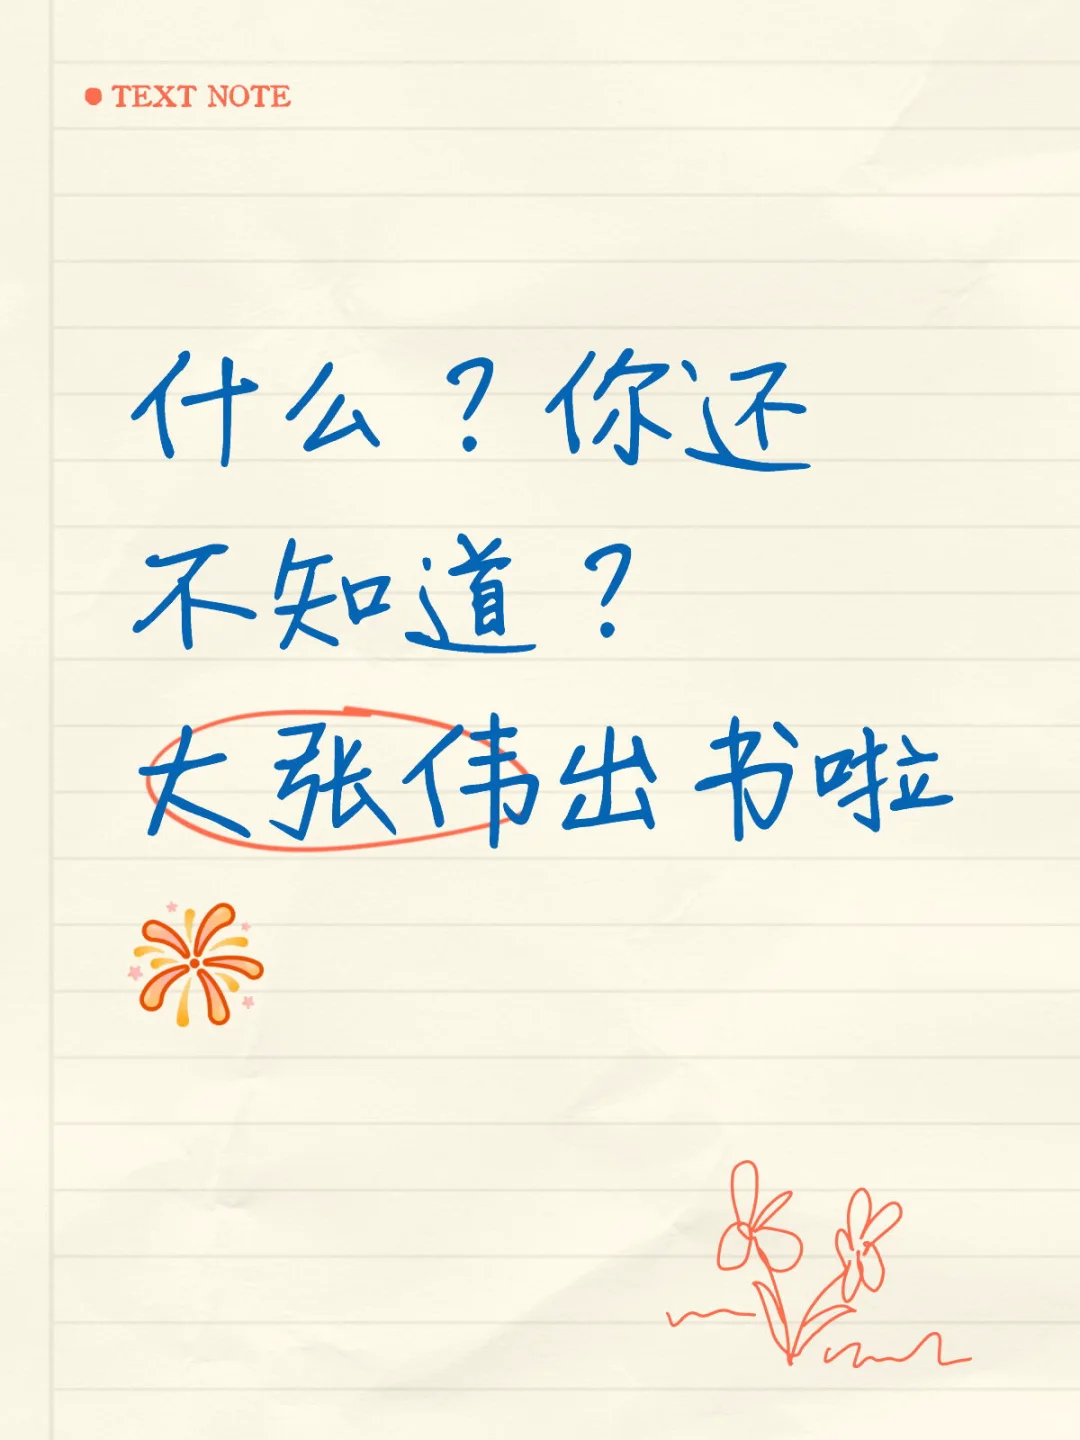 TEXT NOTE
什么？你还
不知道？
大张伟出书啦